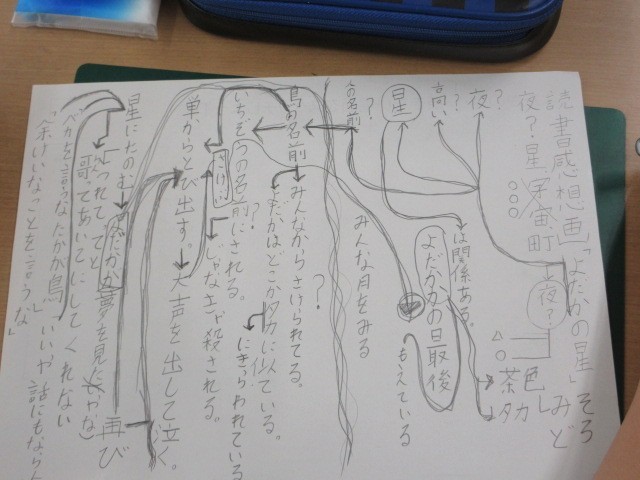 読書感想画「よだかの星」
みどそろ
夜?星
番町
○○○
夜?
△○
茶色
タカ
夜
?
高い
?
星
は関係ある。
よだかの日最後
もえている
の名前
?
みんな月をみる
鳥の名前
みんなからさけられてる。
?
よだかはどこかタカに似ている。
にきらわれている
いちぞうの名前にされる。
?
じゃなきゃ殺される。
さけぶ
単からとび出す。
大声を出して泣く。
星にたのむ
つれてってと
歌ってあいてにしてくれない
よだかが夢を見にくいな
再び
バカを言うなたかが鳥
「いいや話にもならん
「余けいなことを言うな」